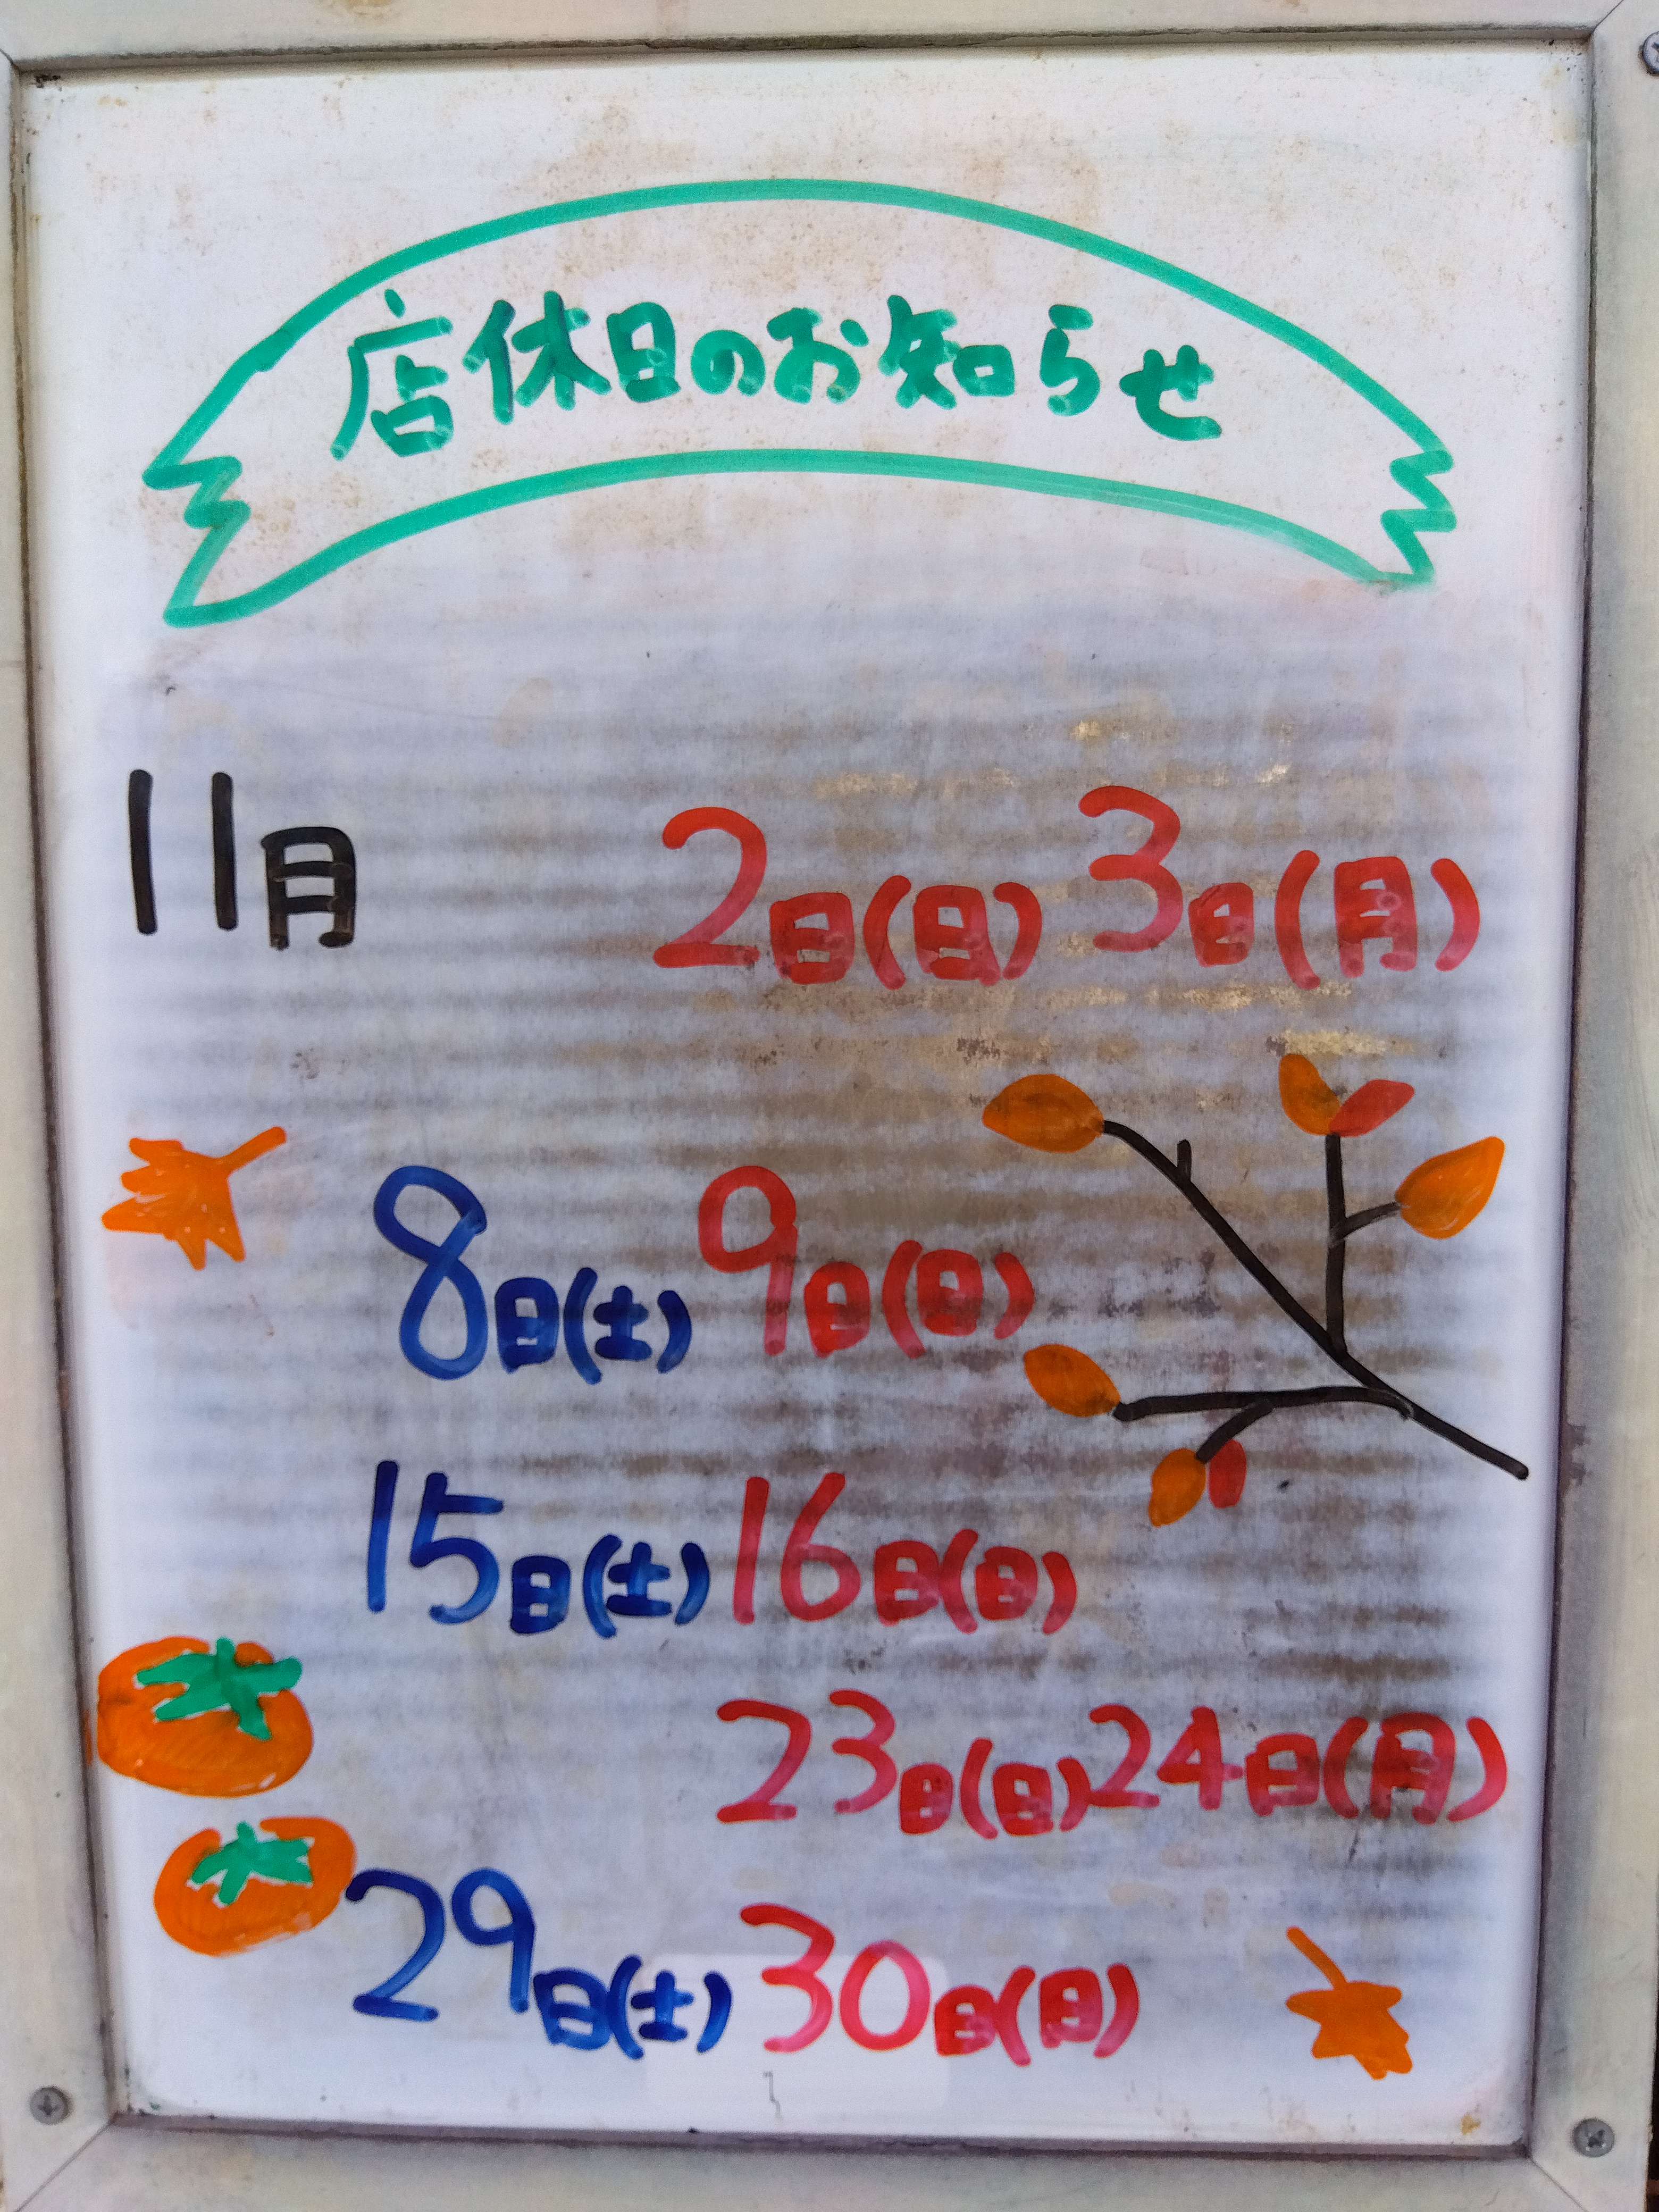 店休日のお知らせ
11月 2日(日) 3日(月)
8日(土) 9日(日)
15日(土) 16日(日)
23日(日) 24日(月)
29日(土) 30日(日)